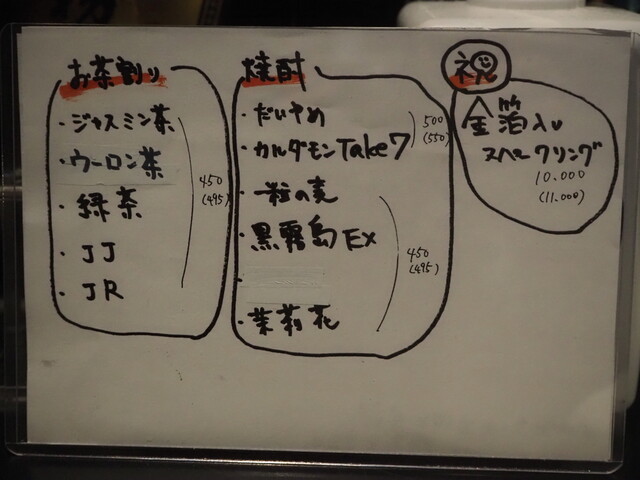 お茶割り
・ジャスミン茶
・ウーロン茶
・緑茶
・JJ
・JR
450
(495)
焼酎
・だいやめ
・カルダモンTake7
500
(550)
・一粒の麦
・黒霧島EX
・
・茉莉花
450
(495)
祝
金箔入り
スパークリング
10.000
(11.000)